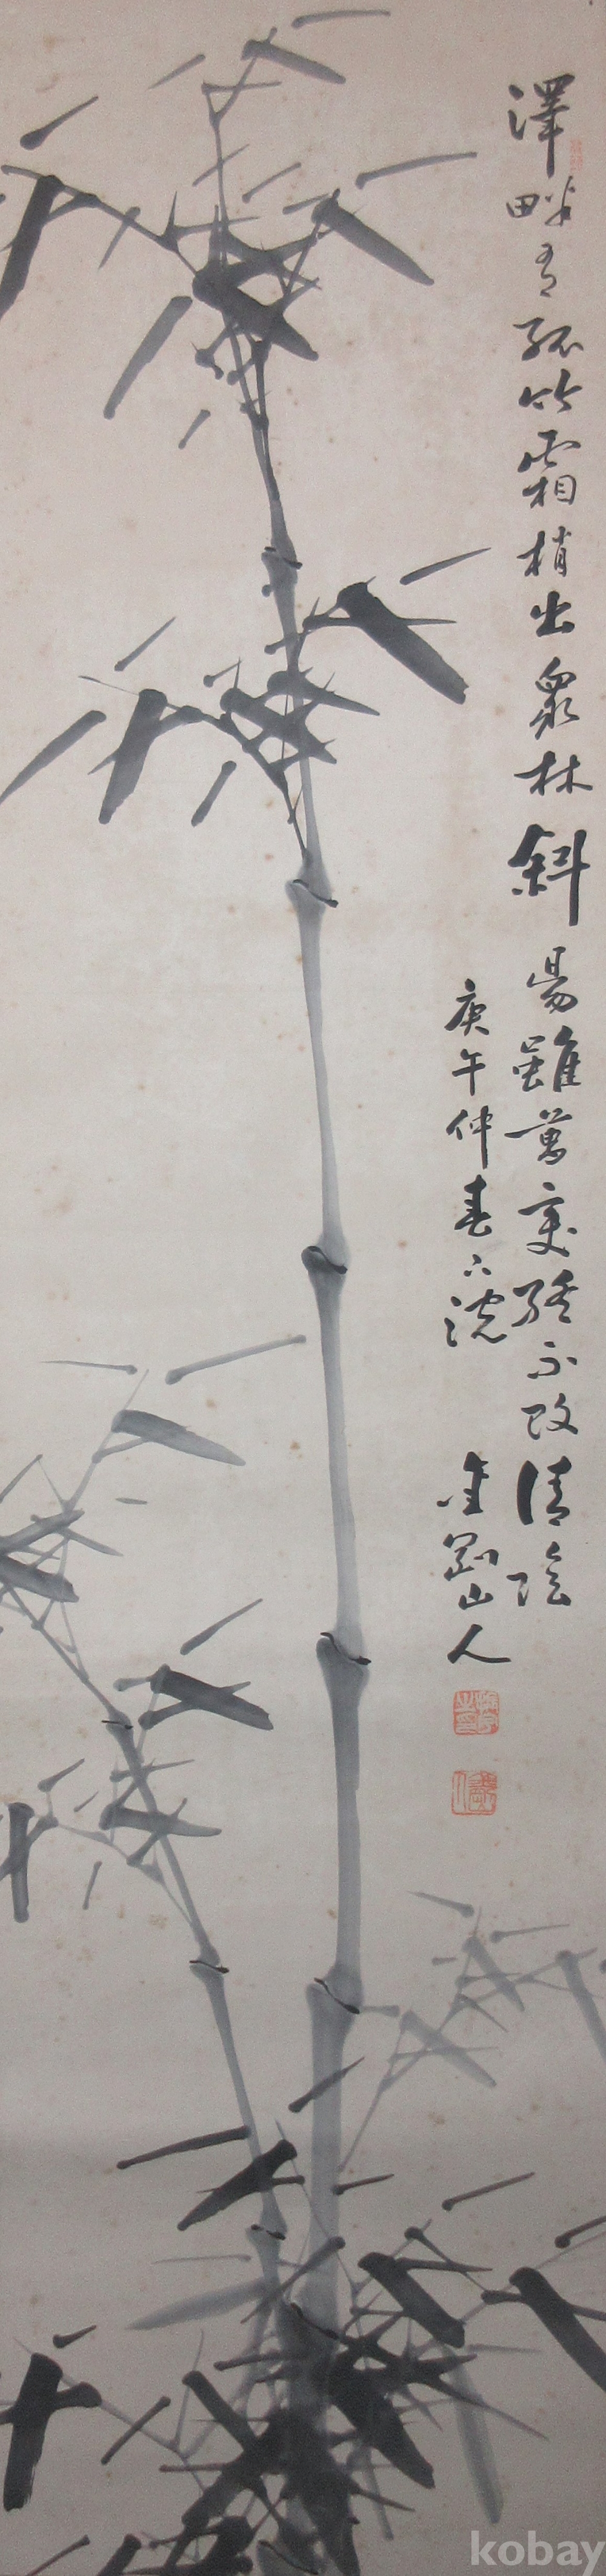 澤畔有孤竹霜梢出衆林斜陽雖萬変終不改清陰
庚午仲春下浣 金剛山人
kobay